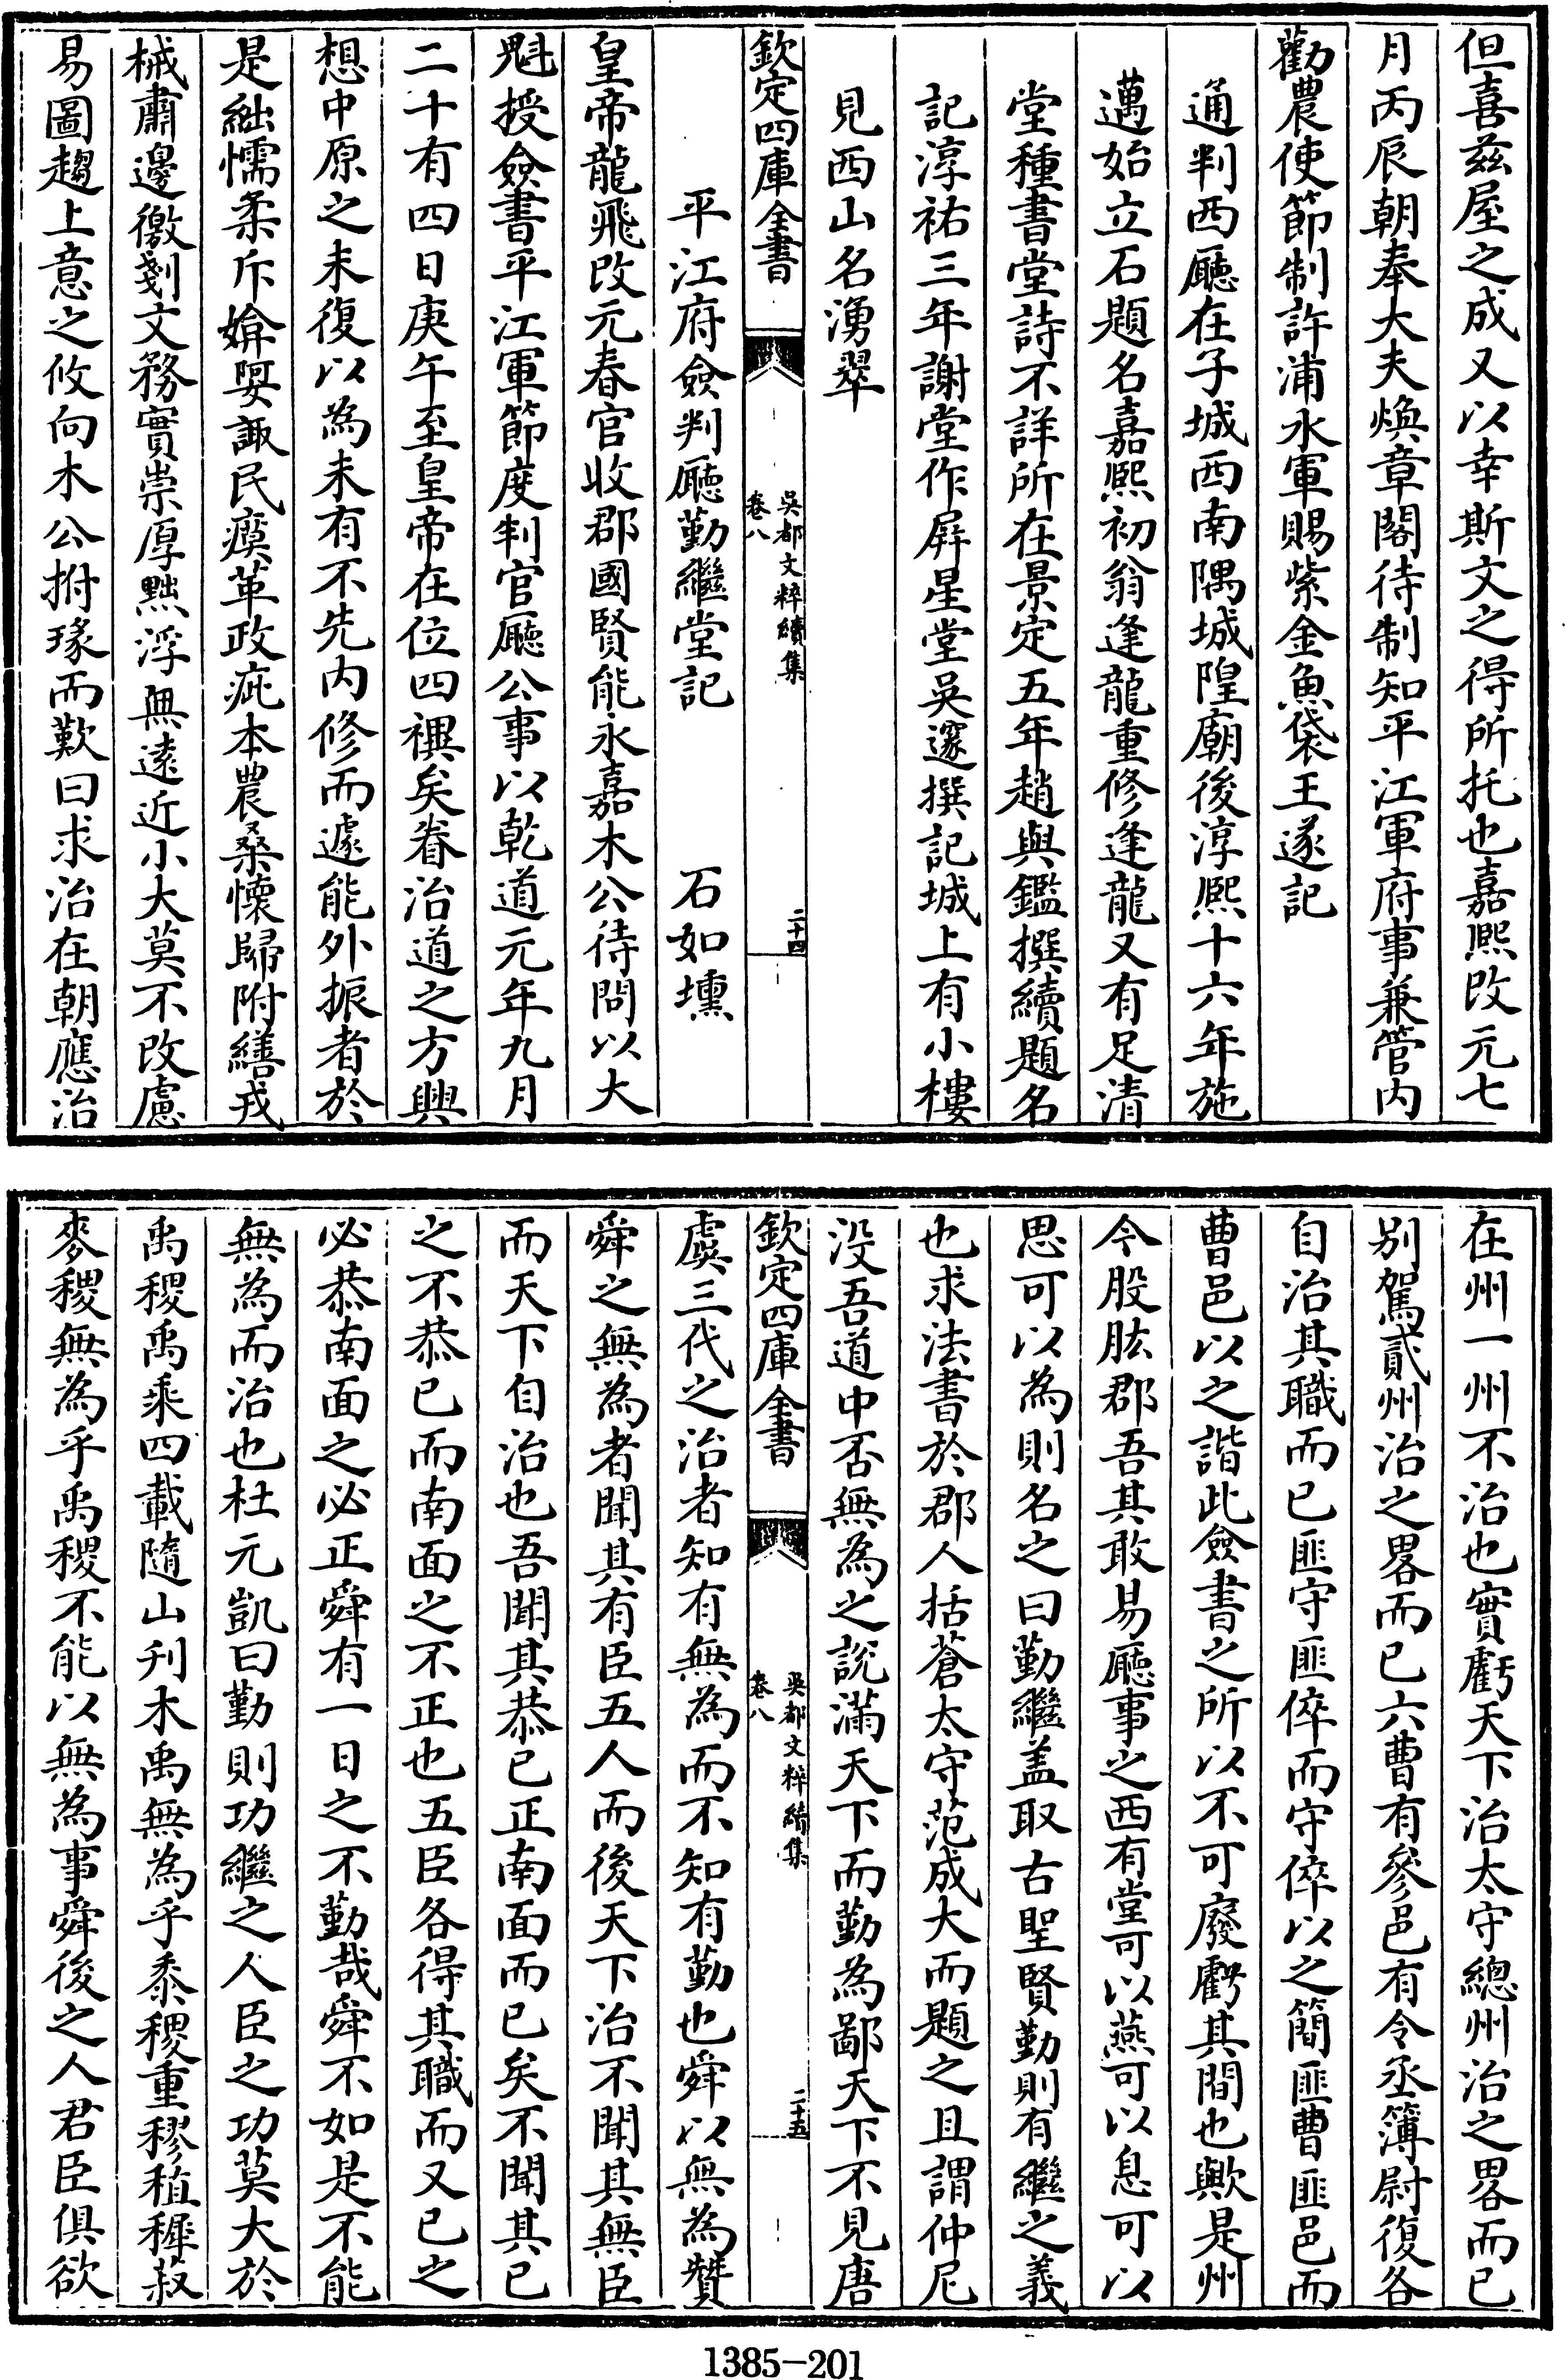 但喜茲屋之成又以幸斯文之得所托也嘉熙改元七
月丙辰朝奉大夫煥章閣待制知平江軍府事兼管内
勸農使節制許浦水軍賜紫金魚袋王遂記
通判西廳在子城西南隅城隍廟後淳熙十六年施
邁始立石題名嘉熙初翁逢龍重修逢龍又有足清
堂種書堂詩不詳所在景定五年趙與鑑撰續題名
記淳祐三年謝堂作屏星堂吳邃撰記城上有小樓
見西山名湧翠
欽定四庫全書
吳都文粹續集
卷八
二十四
平江府僉判廳勤繼堂記
石如壎
皇帝龍飛改元春官收郡國賢能永嘉木公待問以大
魁授僉書平江軍節度判官廳公事以乾道元年九月
二十有四日庚午至皇帝在位四禩矣眷治道之方興
想中原之未復以為未有不先内修而遽能外振者於
是絀懦柔斥媕婴諏民瘼革政疵本農桑懷歸附繕戎
械肅邊徼剗文務實崇厚黜浮無遠近小大莫不改慮
易圖趨上意之攸向木公拊琢而歎曰求治在朝應治
在州一州不治也實虧天下治太守總州治之畧而已
别駕貳州治之畧而已六曹有參邑有令丞簿尉復各
自治其職而已匪守匪倅而守倅以之簡匪曹匪邑而
曹邑以之諧此僉書之所以不可廢虧其間也歟是州
今股肱郡吾其敢易廳事之西有堂可以燕可以息可以
思可以為則名之曰勤繼盖取古聖賢勤則有繼之義
也求法書於郡人括蒼太守范成大而題之且謂仲尼
没吾道中否無為之說滿天下而勤為鄙天下不見唐
欽定四庫全書
吳都文粹續集
卷八
二十五
虞三代之治者知有無為而不知有勤也舜以無為贊
舜之無為者聞其有臣五人而後天下治不聞其無臣
而天下自治也吾聞其恭已正南面而已矣不聞其已
之不恭已而南面之不正也五臣各得其職而又已之
必恭南面之必正舜有一日之不勤哉舜不如是不能
無為而治也杜元凱曰勤則功繼之人臣之功莫大於
禹稷禹乘四載隨山刋木禹無為乎黍稷重穋稙穉菽
麥稷無為乎禹稷不能以無為事舜後之人君臣俱欲
1385-201